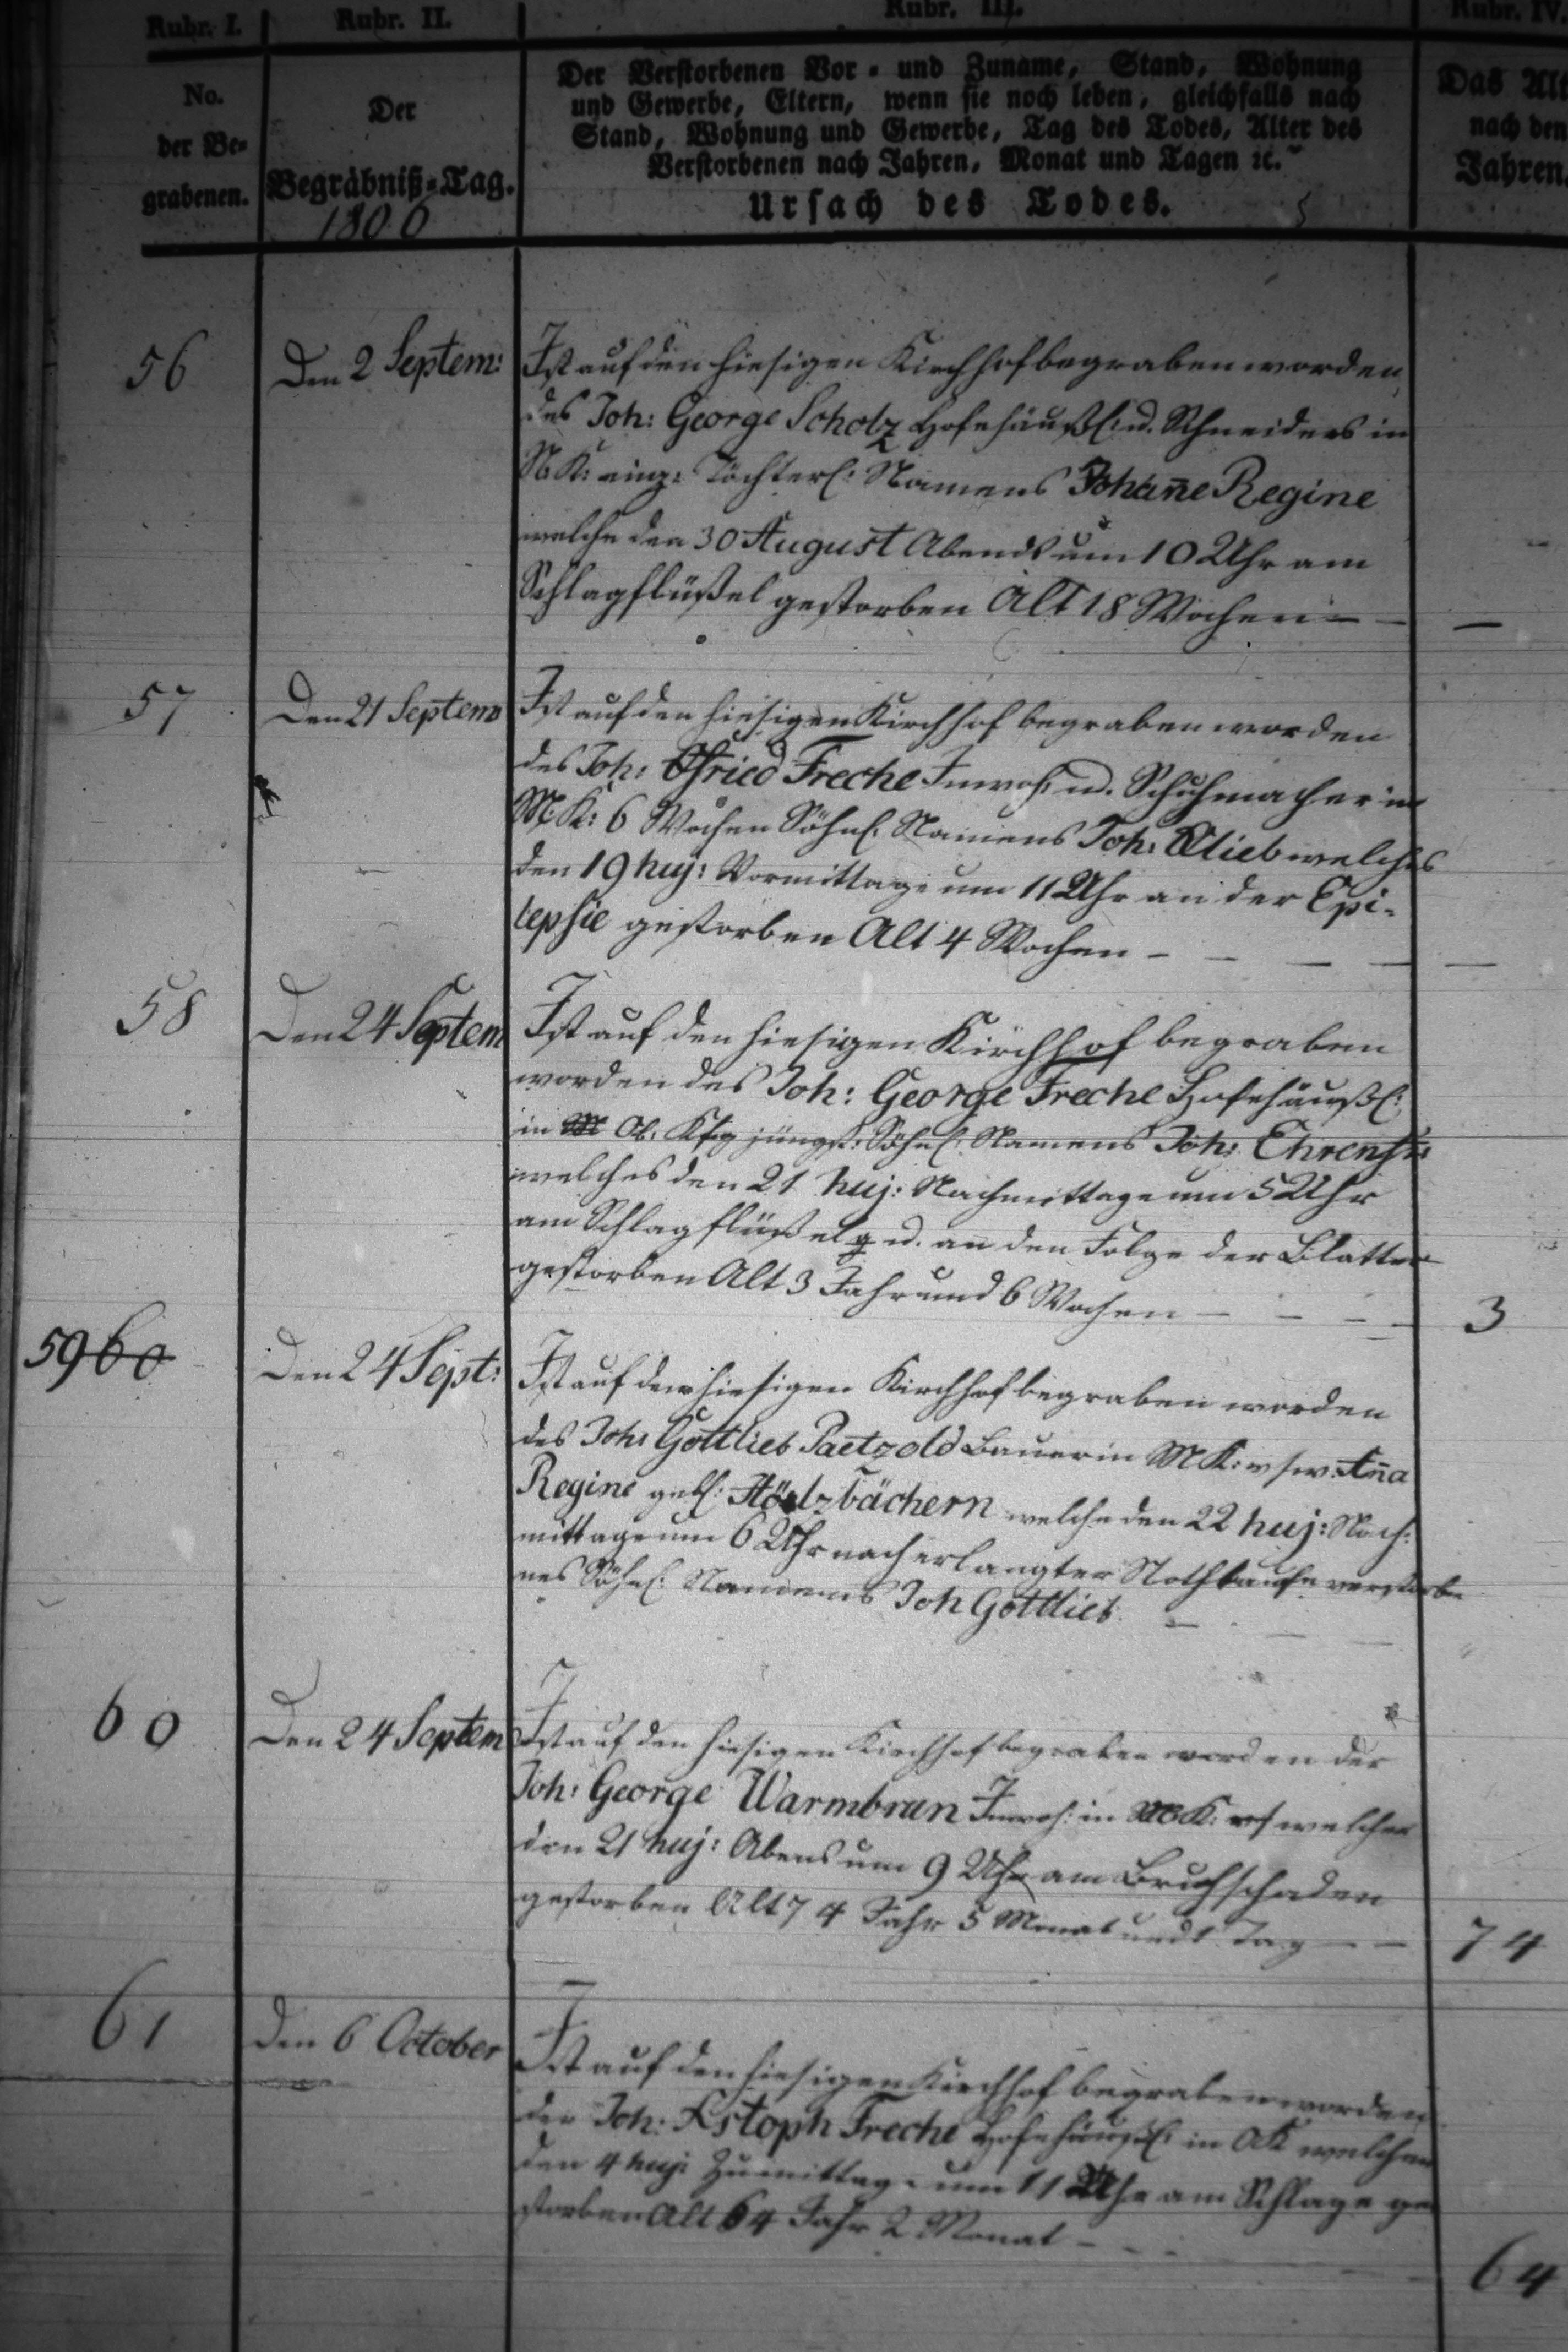 Rubr. I.
Rubr. II.
Rubr. III.
Rubr. IV.
No.
der Be=
grabenen.
Der
Begräbniß=Tag.
1806
Der Verstorbenen Vor= und Zuname, Stand, Wohnung
und Gewerbe, Eltern, wenn sie noch leben, gleichfalls nach
Stand, Wohnung und Gewerbe, Tag des Todes, Alter des
Verstorbenen nach Jahren, Monat und Tagen ꝛc.
Ursach des Todes.
Das Alt
nach den
Jahren.
56
Den 2 Septem:
Ist auf den hiesigen Kirchhof begraben worden
des Joh: George Scholz Hofehäußl: u. Schneiders in
K: einz: Töchterl: Namens Johañe Regine
welche den 30 August Abends um 10 Uhr am
Schlagflüßel gestorben Alt 18 Wochen — —
—
57
Den 21 Septem
Ist auf den hiesigen Kirchhof begraben worden
des Joh: Gfried Freche Inwoh: u. Schuhmacher in
MK: 6 Wochen Söhnl. Namens Joh: Glieb welches
den 19 huj: Vormittage um 11 Uhr an der Epi-
lepsie gestorben Alt 4 Wochen — — — —
—
58
Den 24 Septem
Ist auf den hiesigen Kirchhof begraben
worden des Joh: George Freche Hofehäußl:
in Ob: jüngst: Söhnl: Namens Joh: Ehrenfr:
welches den 21 huj: Nachmittage um 5 Uhr
am Schlagflüßel u. an den Folge der Blatter
gestorben Alt 3 Jahr und 6 Wochen — — — —
3
59 60
Den 24 Sept:
Ist auf dem hiesigen Kirchhof begraben worden
des Joh: Gottlieb Paetzold Bauer in MK: Añna
Regine geb: welche den 22 huj: Nach:
mittage um 6 Uhr nach erlangter Nothtaufe verstorbe
nes Söhnl: Namens Joh Gottlieb — — —
60
Den 24 Septem
Ist auf den hiesigen Kirchhof begraben worden der
Joh: George Warmbrun Inwoh: in K: welcher
den 21 huj: Abens um 9 Uhr am Bruchschaden
gestorben Alt 74 Jahr 5 Monat und 1 Tag — —
74
61
Den 6 October
Ist auf den hiesigen Kirchhof begraben worden
der Joh: Xstoph Freche Hofehäußl: in OK welcher
den 4 huj: Zumittag um 11 Uhr am Schlage ge
storben Alt 64 Jahr 2 Monat — — —
64